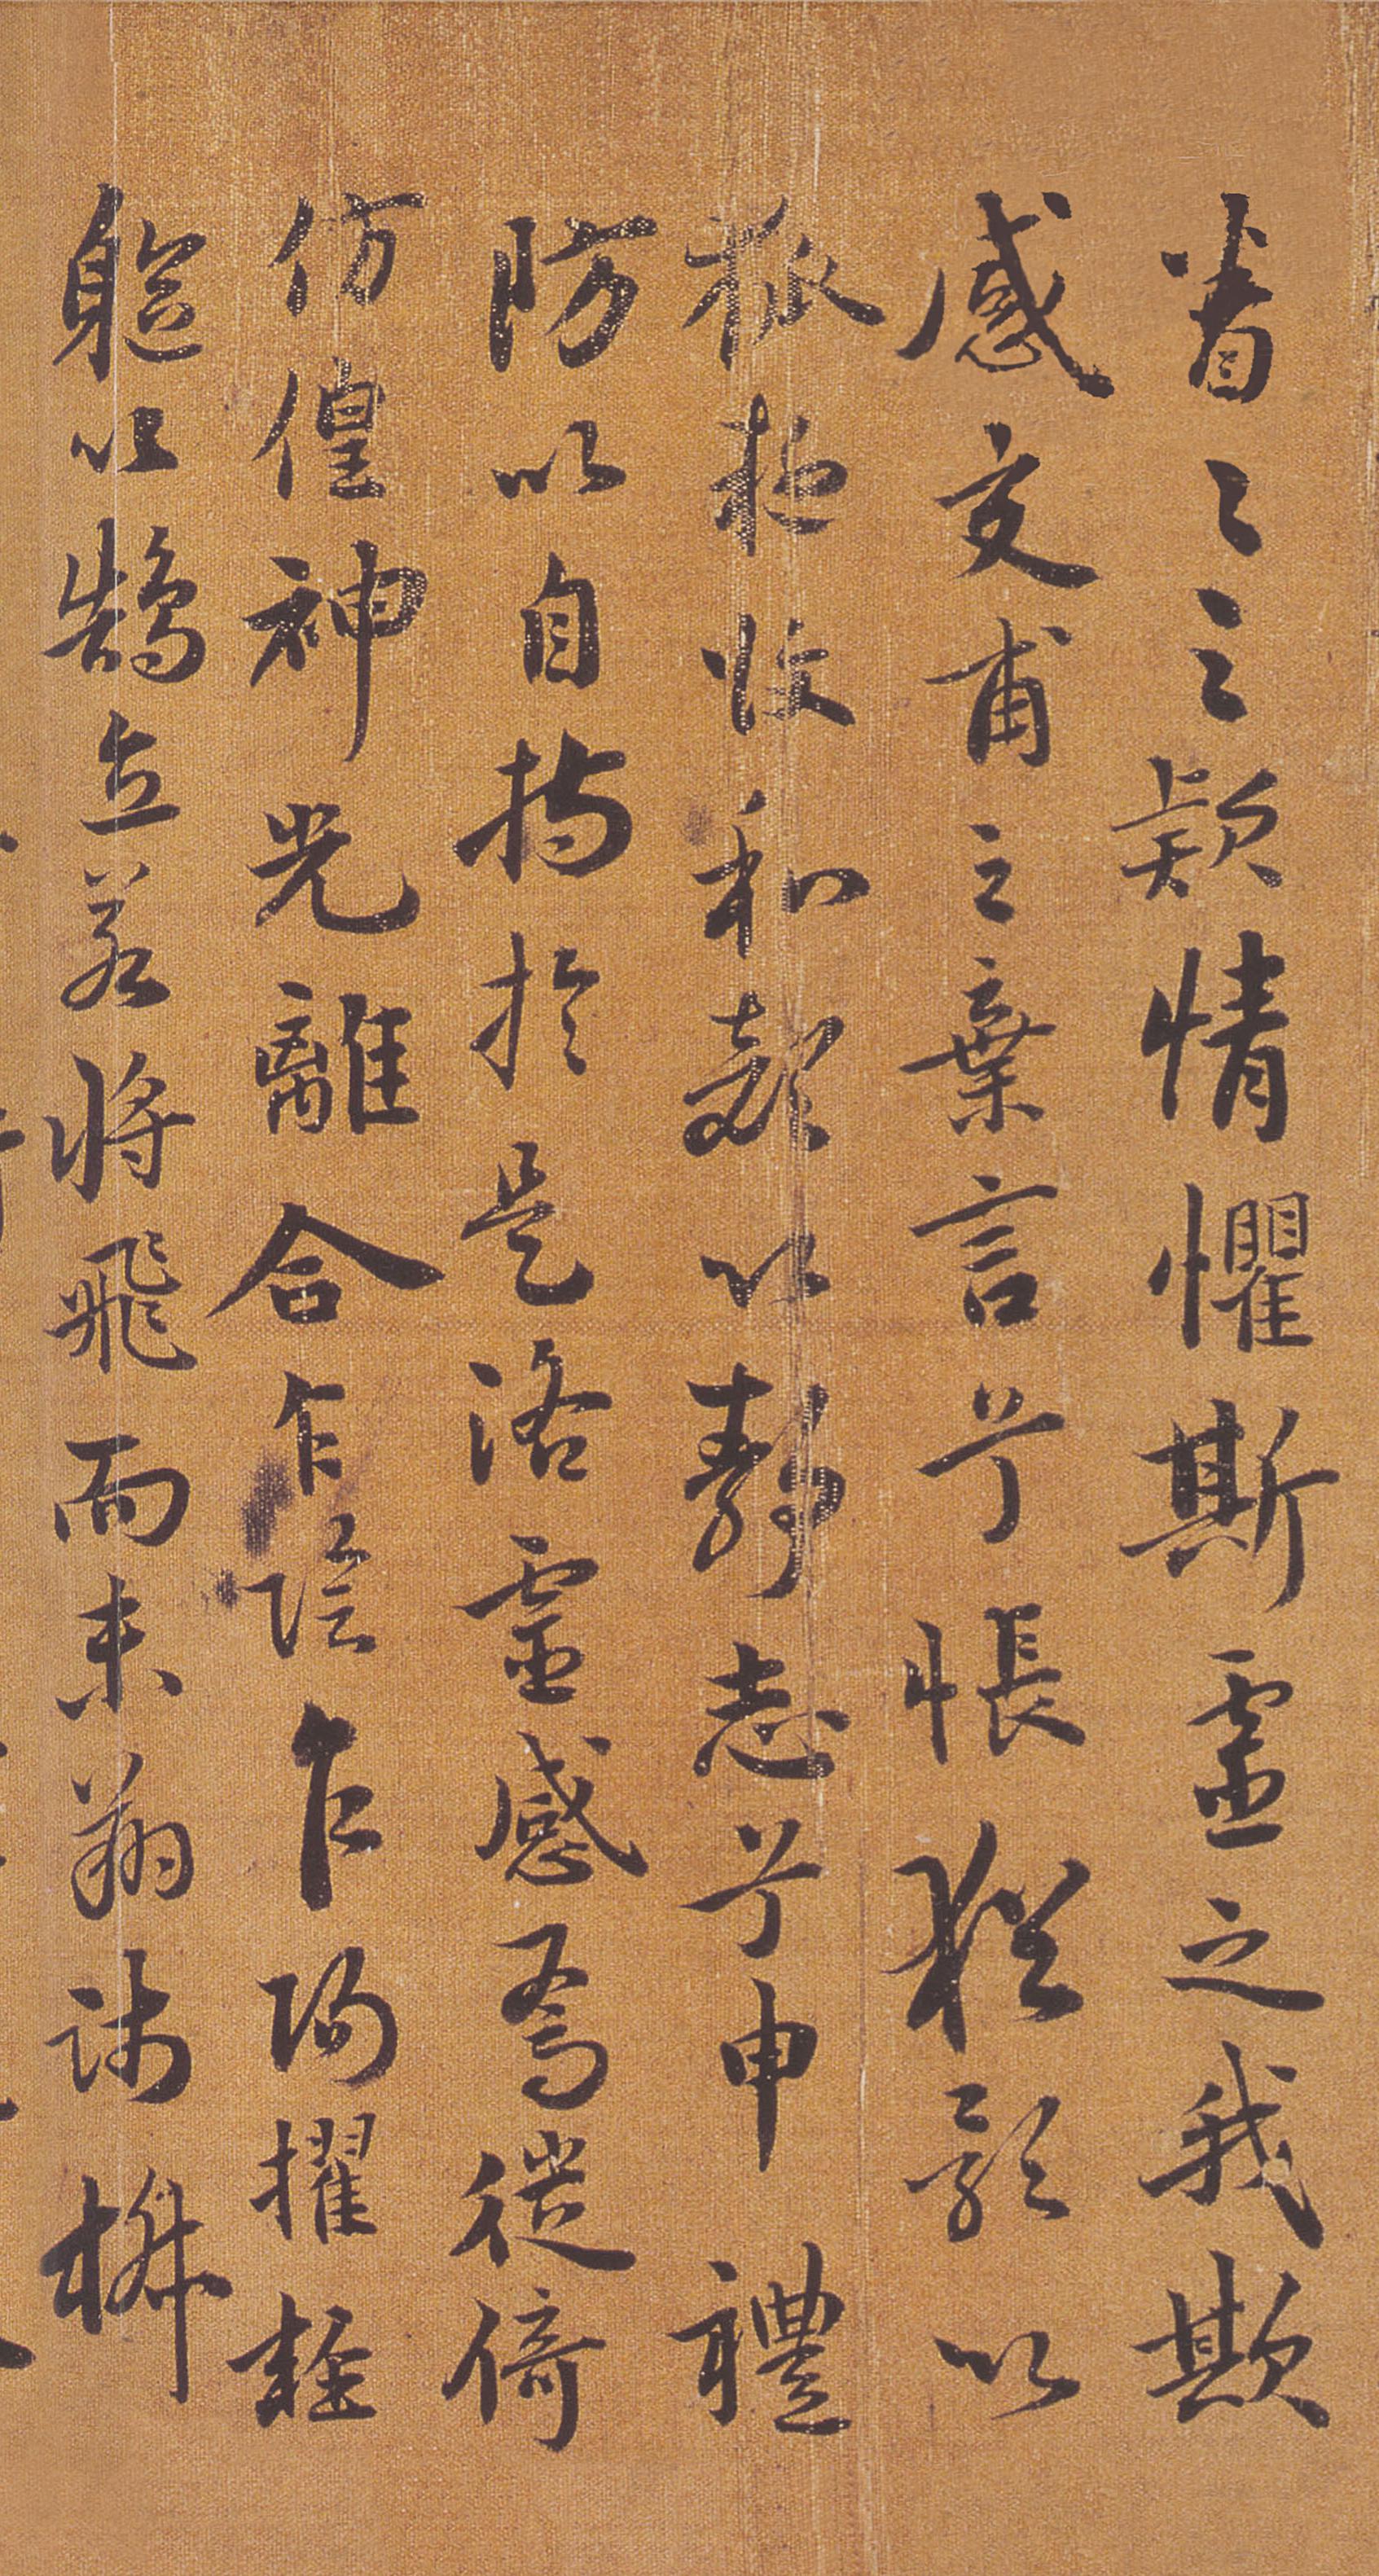 眷〻之款情懼斯靈之我欺
感交甫之棄言兮悵猶豫以
狐疑收和顏以靜志兮申禮
防以自持於是洛靈感焉徙倚
仿偟神光離合乍陰乍陽擢輕
軀以鵠立若將飛而未翔踐椒